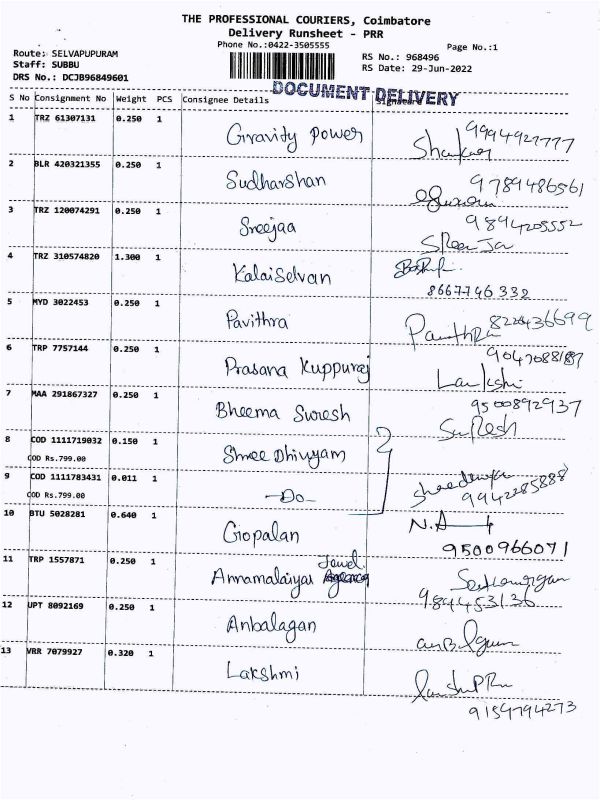 THE PROFESSIONAL COURIERS, Coimbatore
Delivery Runsheet - PRR
Phone No.:0422-3505555
Page No.:1
Route: SELVAPUPURAM
Staff: SUBBU
DRS No.: DCJB96849601
RS No.: 968496
RS Date: 29-Jun-2022
DOCUMENT DELIVERY
S No Consignment No Weight PCS Consignee Details Signature
1 TRZ 61307131 0.250 1 Gravity Power 9994927777
2 BLR 420321355 0.250 1 Sudharshan 9789486561
3 TRZ 120074291 0.250 1 Sreejaa 9894205552
SReeJa
4 TRZ 310574820 1.300 1 KalaiSelvan
8667746332
5 MYD 3022453 0.250 1 Pavithra
6 TRP 7757144 0.250 1 Prasana Kuppuraj
7 MAA 291867327 0.250 1 Bheema Suresh 9500892937
SuResh
8 COD 1111719032 0.150 1 Shree Dhivyam
COD Rs.799.00
9 COD 1111783431 0.011 1 -Do-
COD Rs.799.00
9942285888
10 BTU 5028281 0.640 1 Gopalan N.A
9500966071
11 TRP 1557871 0.250 1 Annamalaiyar Jewel
984453136
12 UPT 8092169 0.250 1 Anbalagan
13 VRR 7079927 0.320 1 Lakshmi
9154794273